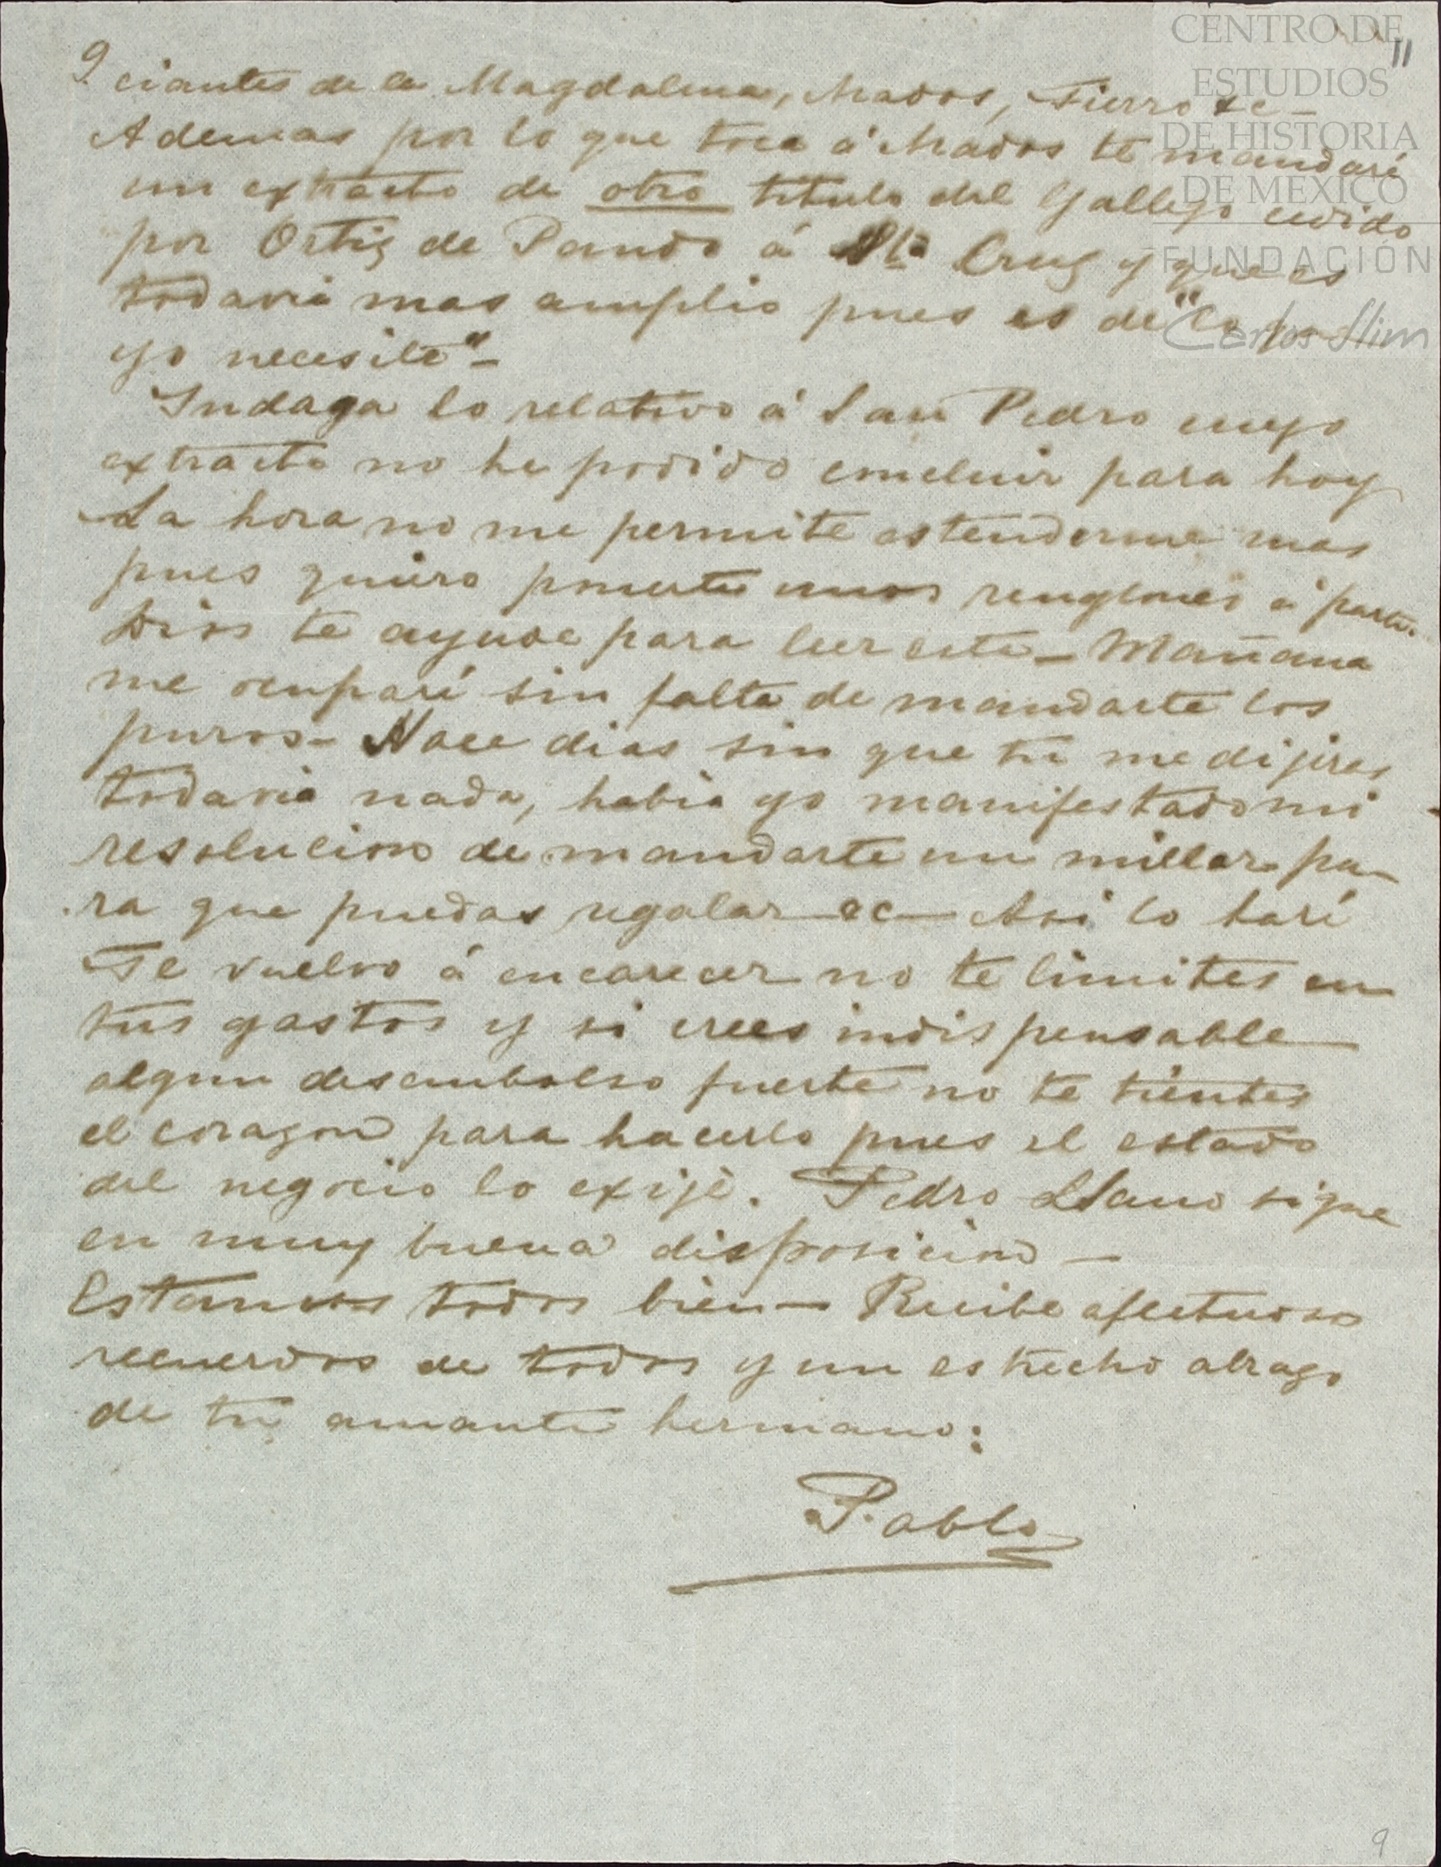 CENTRO DE
ESTUDIOS
DE HISTORIA
DE MEXICO
FUNDACIÓN
Carlos Slim
11
9. ciantes de la Magdalena, Mados, Fierro &c—
Ademas por lo que toca á Mados te mandaré
un extracto de otro titulo del Gallego cedido
por Ortiz de Pando á Sta Cruz y que es
todavia mas amplio pues es de "lo que
yo necesite"—
Indaga lo relativo á San Pedro cuyo
extracto no he podido concluir para hoy
La hora no me permite estenderme mas
pues quiero ponerte unos renglones á parte.
Dios te ayude para leer esta— Mañana
me ocuparé sin falta de mandarte los
puros— Hace dias sin que tu me dijeras
todavia nada, habia yo manifestado mi
resolucion de mandarte un millar pa-
ra que puedas regalar &c— Asi lo haré
Te vuelvo á encarecer no te limites en
tus gastos y si crees indispensable
algun desembolso fuerte no te tientes
el corazon para hacerlo pues el estado
del negocio lo exije. Pedro Llano sigue
en muy buena disposicion—
Estamos todos bien— Recibe afectuosos
recuerdos de todos y un estrecho abrazo
de tu amante hermano:
Pablo
9